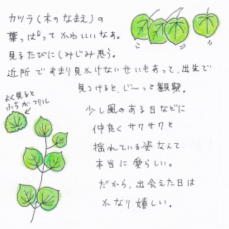 カツラ（木のなまえ）の
葉っぱってかわいいなぁ。
見るたびにしみじみ思う。
近所であまり見かけないせいもあって、出先で
見つけると、じーっと観察。
よく見ると
ふちがフリル
少し風のある日などに
仲良くサクサクと
揺れている姿なんて
本当に愛らしい。
だから、出会えた日は
かなり嬉しい。